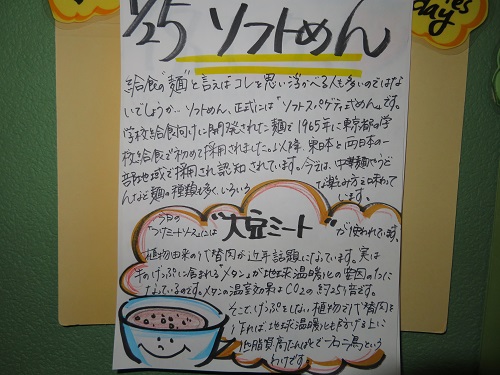 1/25 ソフトめん
給食で"麺"と言えばコレを思い浮かべる人も多いのではな
いでしょうか… ソフトめん、正式には"ソフトスパゲティ式めん"です。
学校給食向けに開発された麺で1965年に東京都の学
校給食で初めて採用されました。以降、東日本と西日本の一
部地域で採用され認知されています。今では、中華麺やうど
んなど麺の種類も多く、いろいろな楽しみ方を味わって
います。
今日の
"つけミートソース"には "大豆ミート" が使われています。
植物由来の代替肉が近年話題になっています。実は
牛のげっぷに含まれる"メタン"が地球温暖化の要因の1つに
なっているのです。メタンの温室効果はCO2の約25倍です。
そこで、げっぷをしない植物で代替肉を
作れば地球温暖化も防げる上に
低脂質高たんぱくで一石二鳥という
わけです。
day